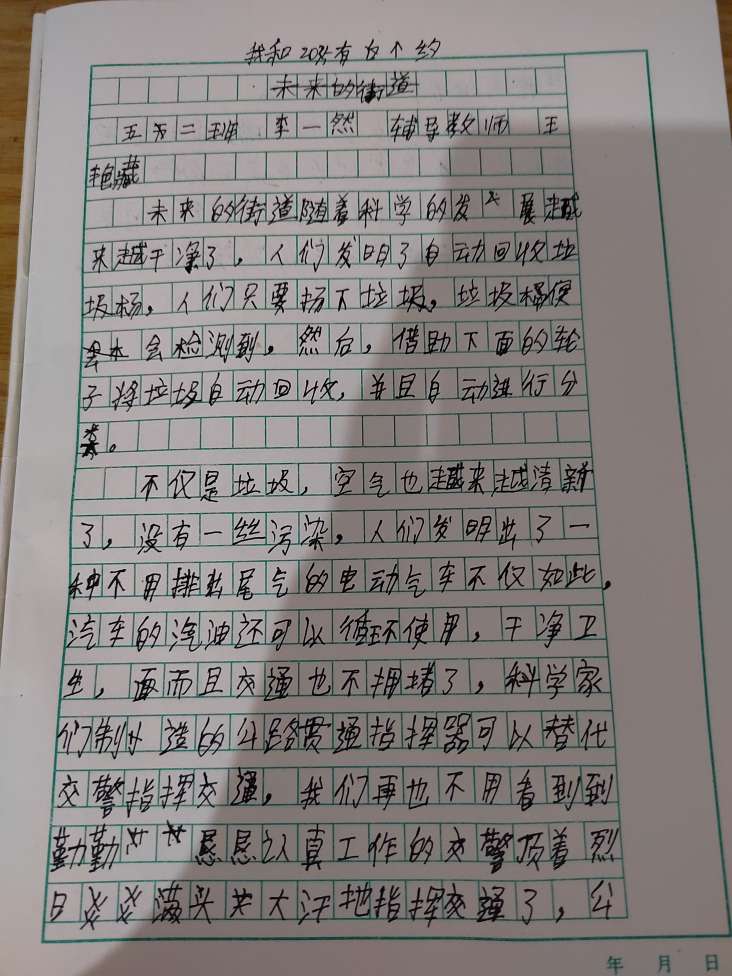 我和20岁有个约
未来的街道
五年二班 李一然 辅导教师 王
艳藏
未来的街道随着科学的发展越
来越干净了，人们发明了自动回收垃
圾桶，人们只要扔下垃圾，垃圾桶便
会检测到，然后，借助下面的轮
子将垃圾自动回收，并且自动进行分
类。
不仅是垃圾，空气也越来越清新
了，没有一丝污染，人们发明出了一
种不用排放尾气的电动气车不仅如此，
汽车的汽油还可以循环使用，干净卫
生，而且交通也不拥堵了，科学家
们制造的公路贯通指挥器可以替代
交警指挥交通，我们再也不用看到到
勤勤恳恳认真工作的交警顶着烈
日满头大汗地指挥交通了，公
年 月 日